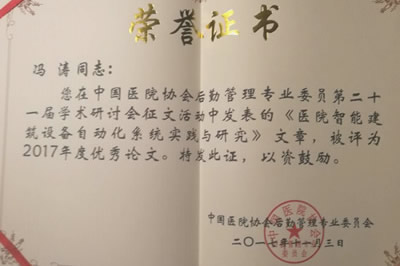 荣誉证书
冯 涛同志:
您在中国医院协会后勤管理专业委员第二十
一届学术研讨会征文活动中发表的《医院智能建
筑设备自动化系统实践与研究》文章,被评为
2017年度优秀论文。特发此证,以资鼓励。
中国医院协会后勤管理专业委员会
二〇一七年十一月三日